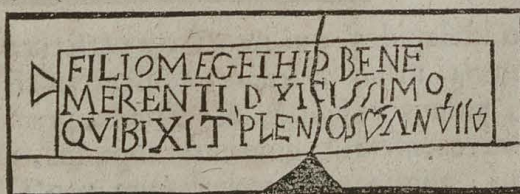 FILIOMEGETHIO BENE
MERENTI DVLCISSIMO
QVIBIXIT PLENOS